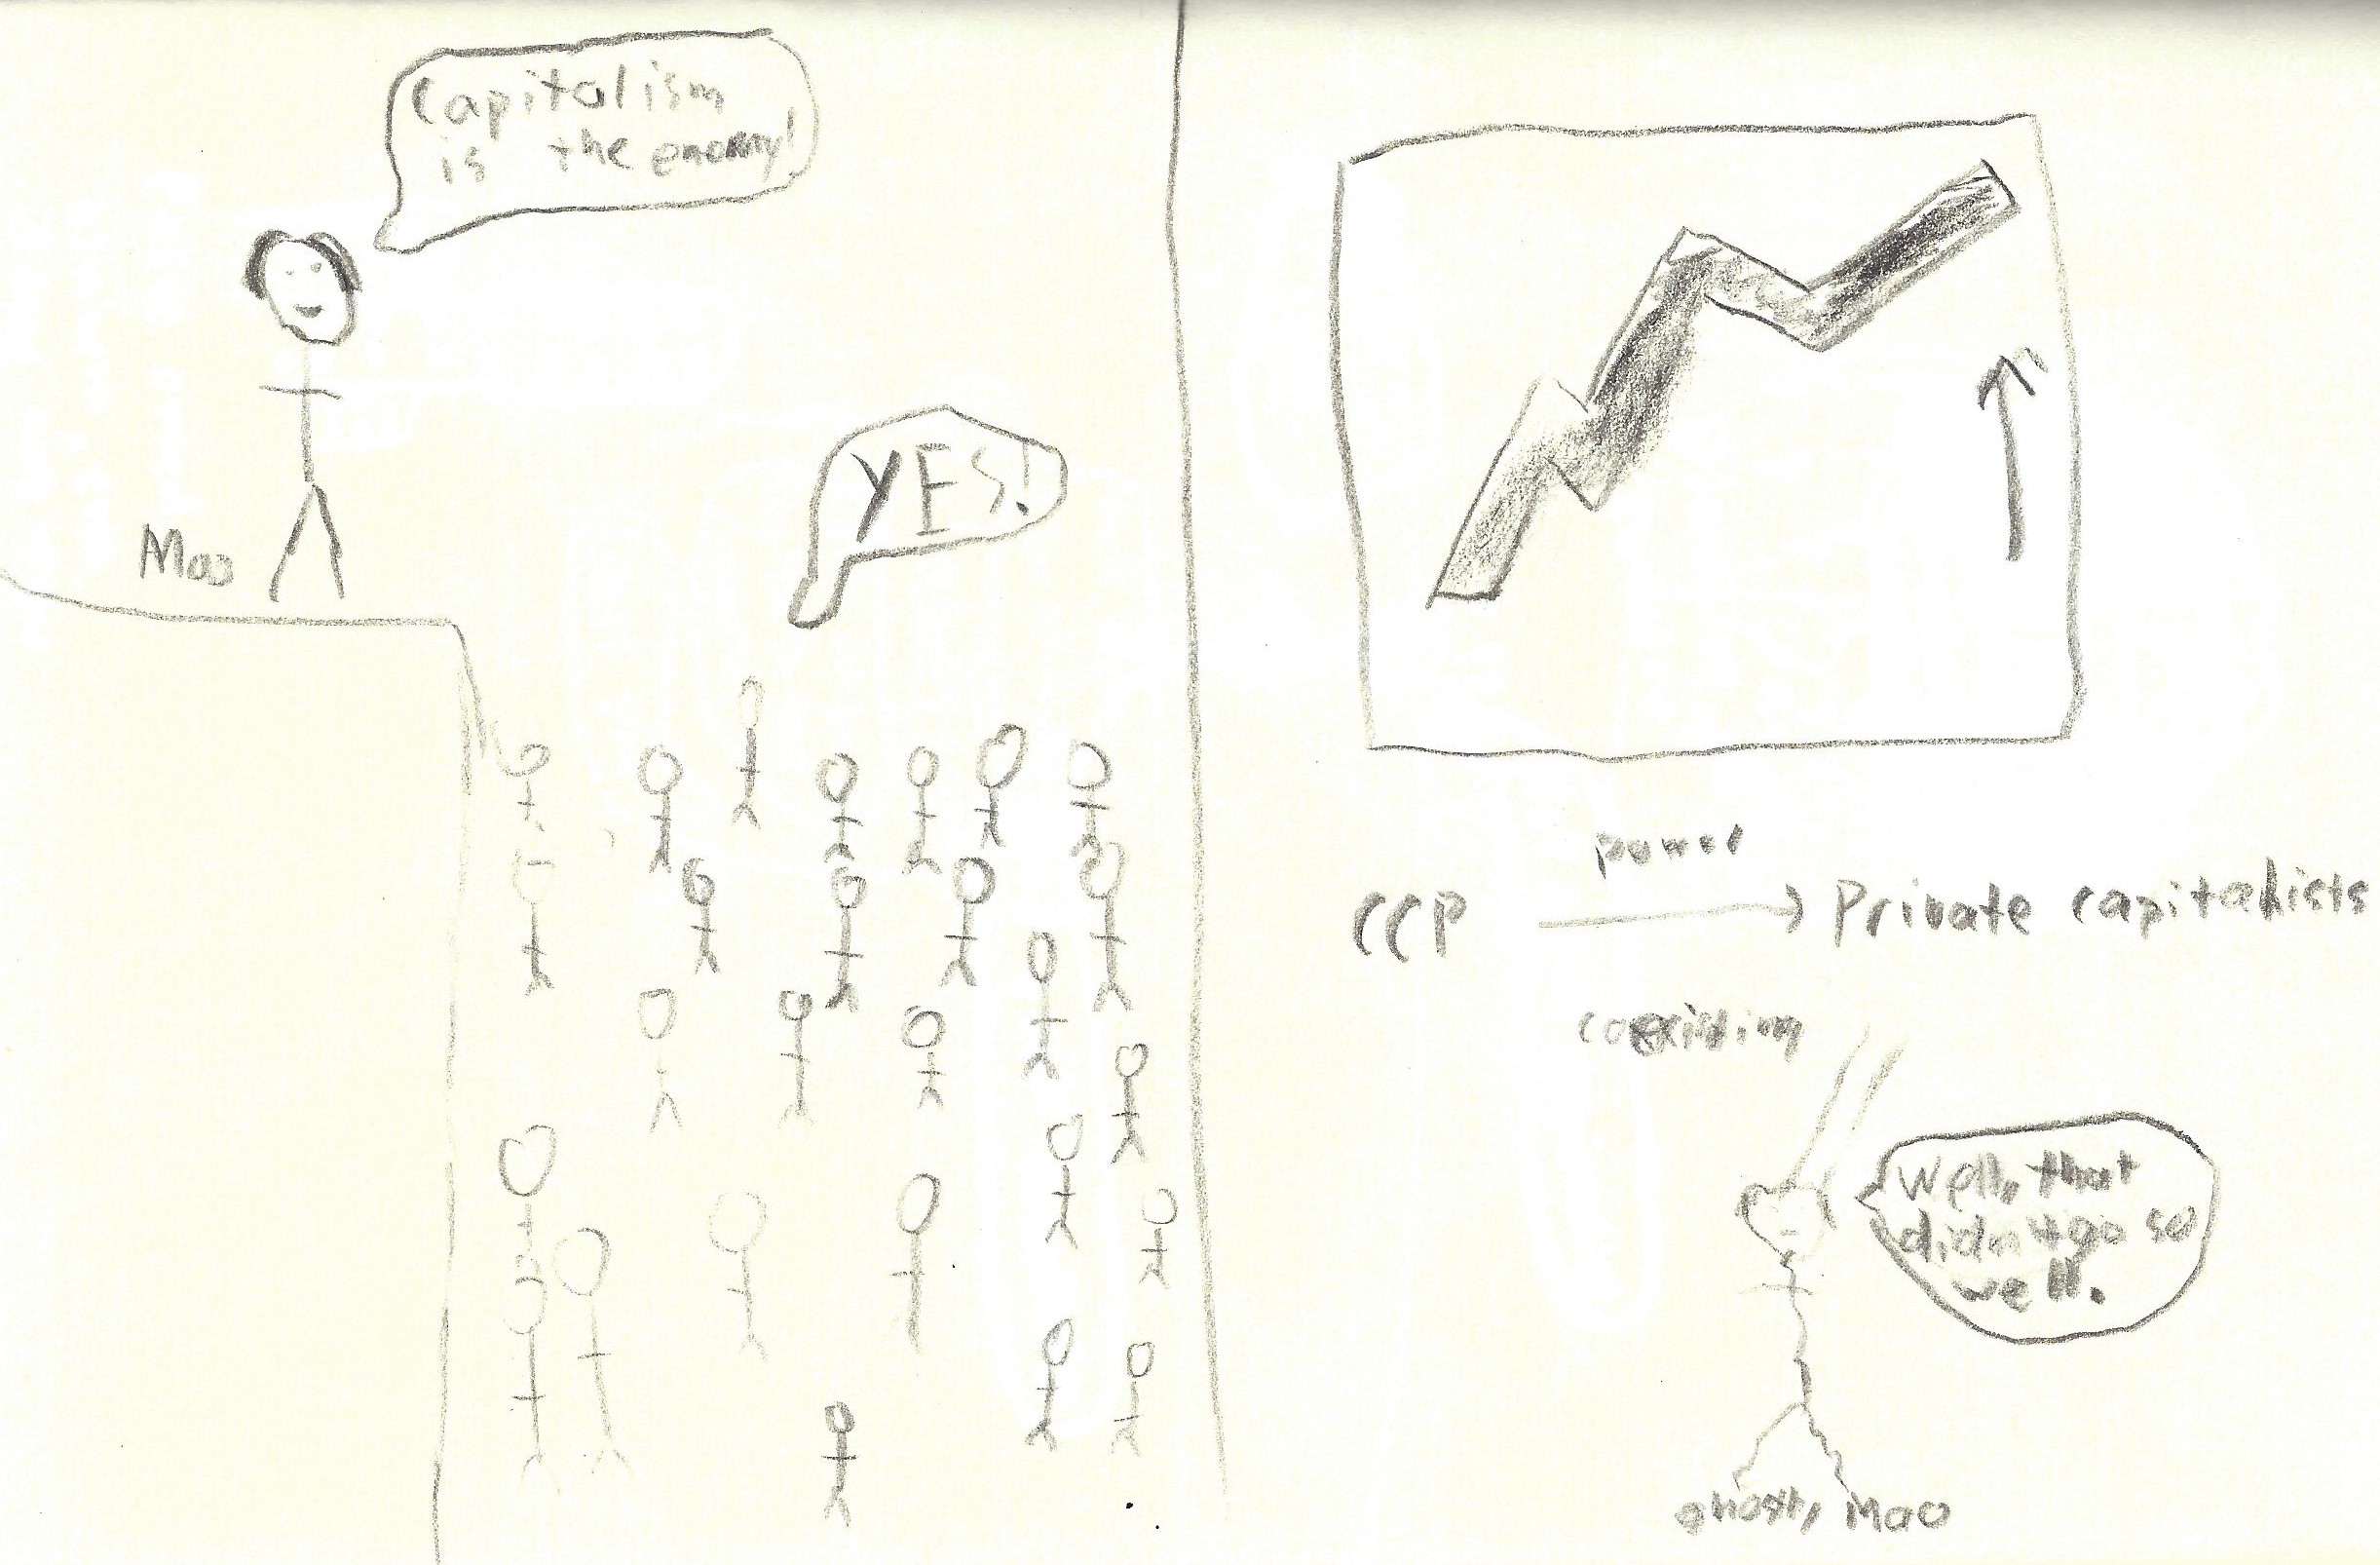 Capitalism
is the enemy!
Mao
YES!
power
CCP Private capitalists
Well, that
didn't go so
well.
ghost, Mao